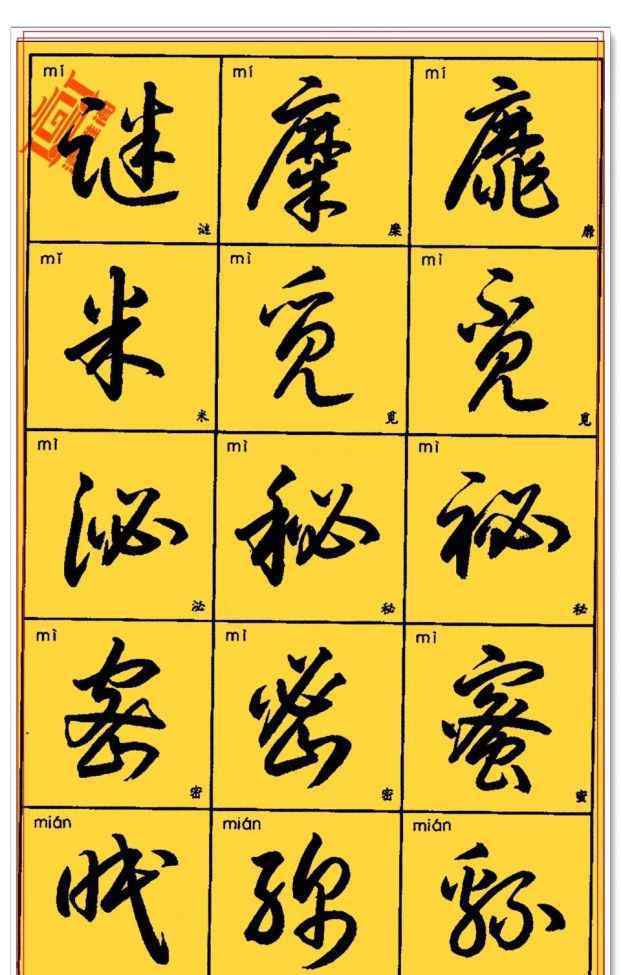 mí mí mí
谜 糜 靡
谜 糜 靡
mǐ mì mì
米 觅 觅
米 觅 觅
mì mì mì
泌 秘 秘
泌 秘 秘
mì mì mì
密 密 蜜
密 密 蜜
mián mián mián
眠 绵